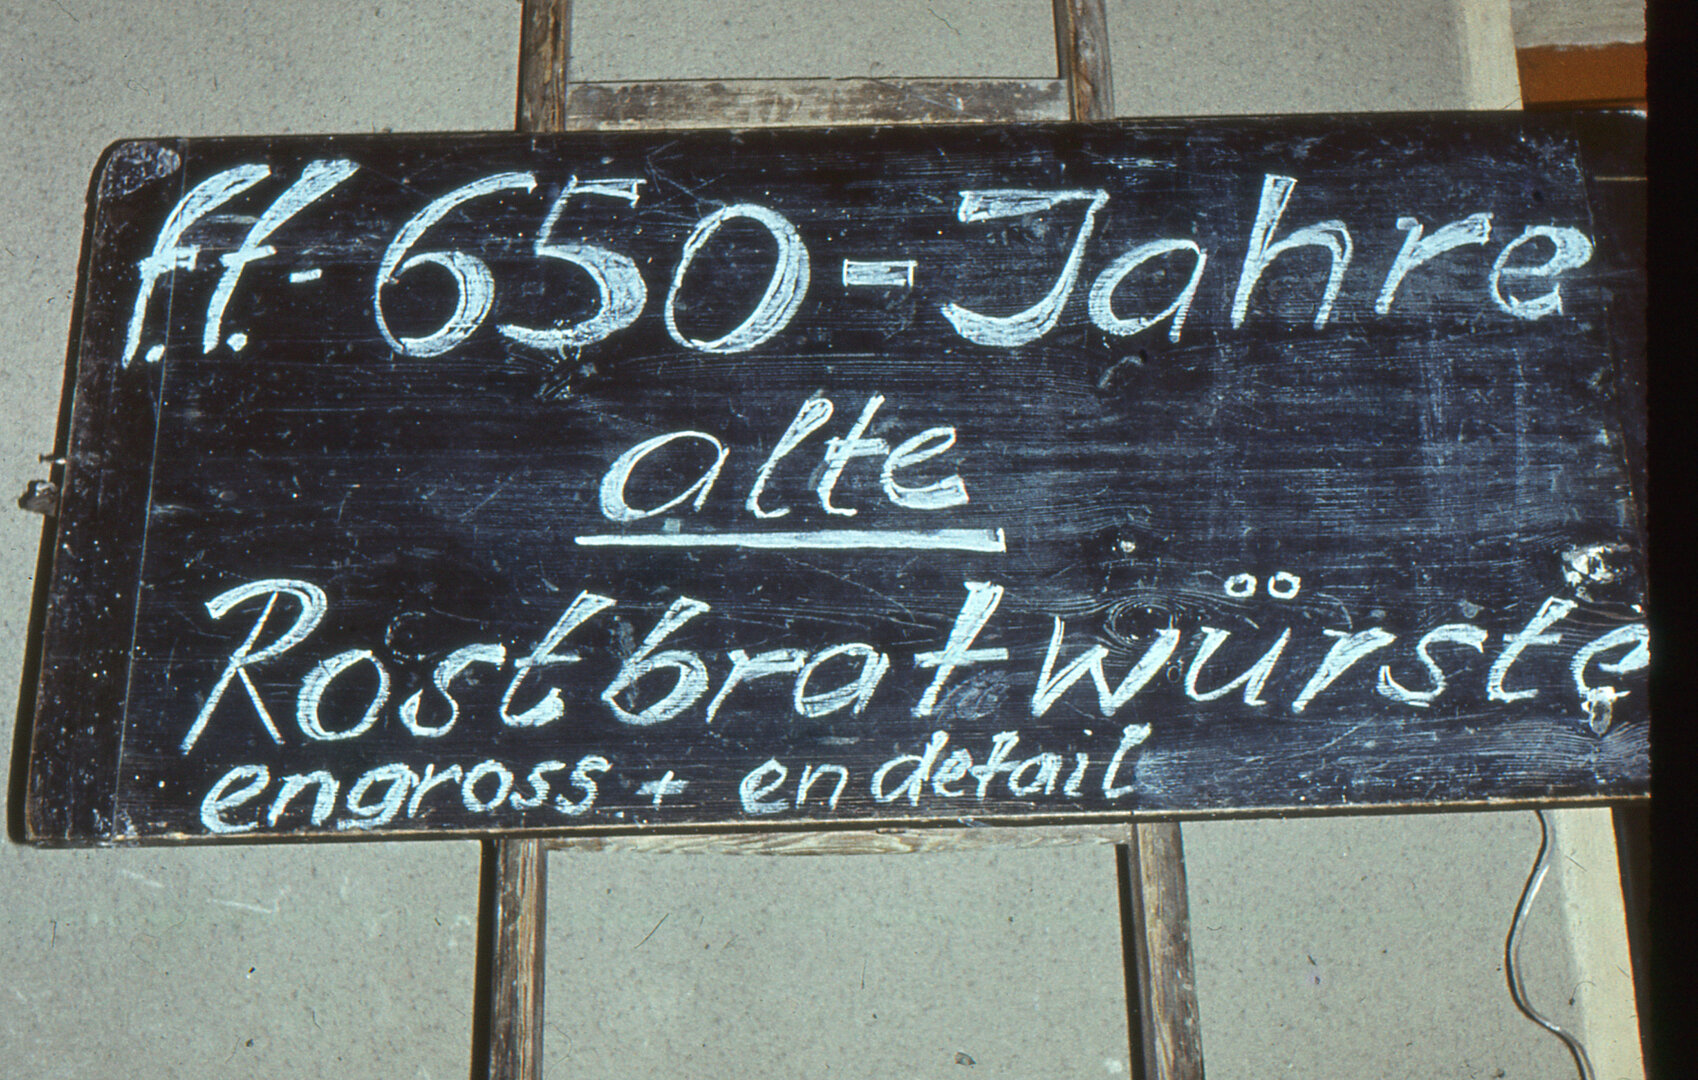 f.f.- 650-Jahre
alte
Rostbratwürste
engross + en detail